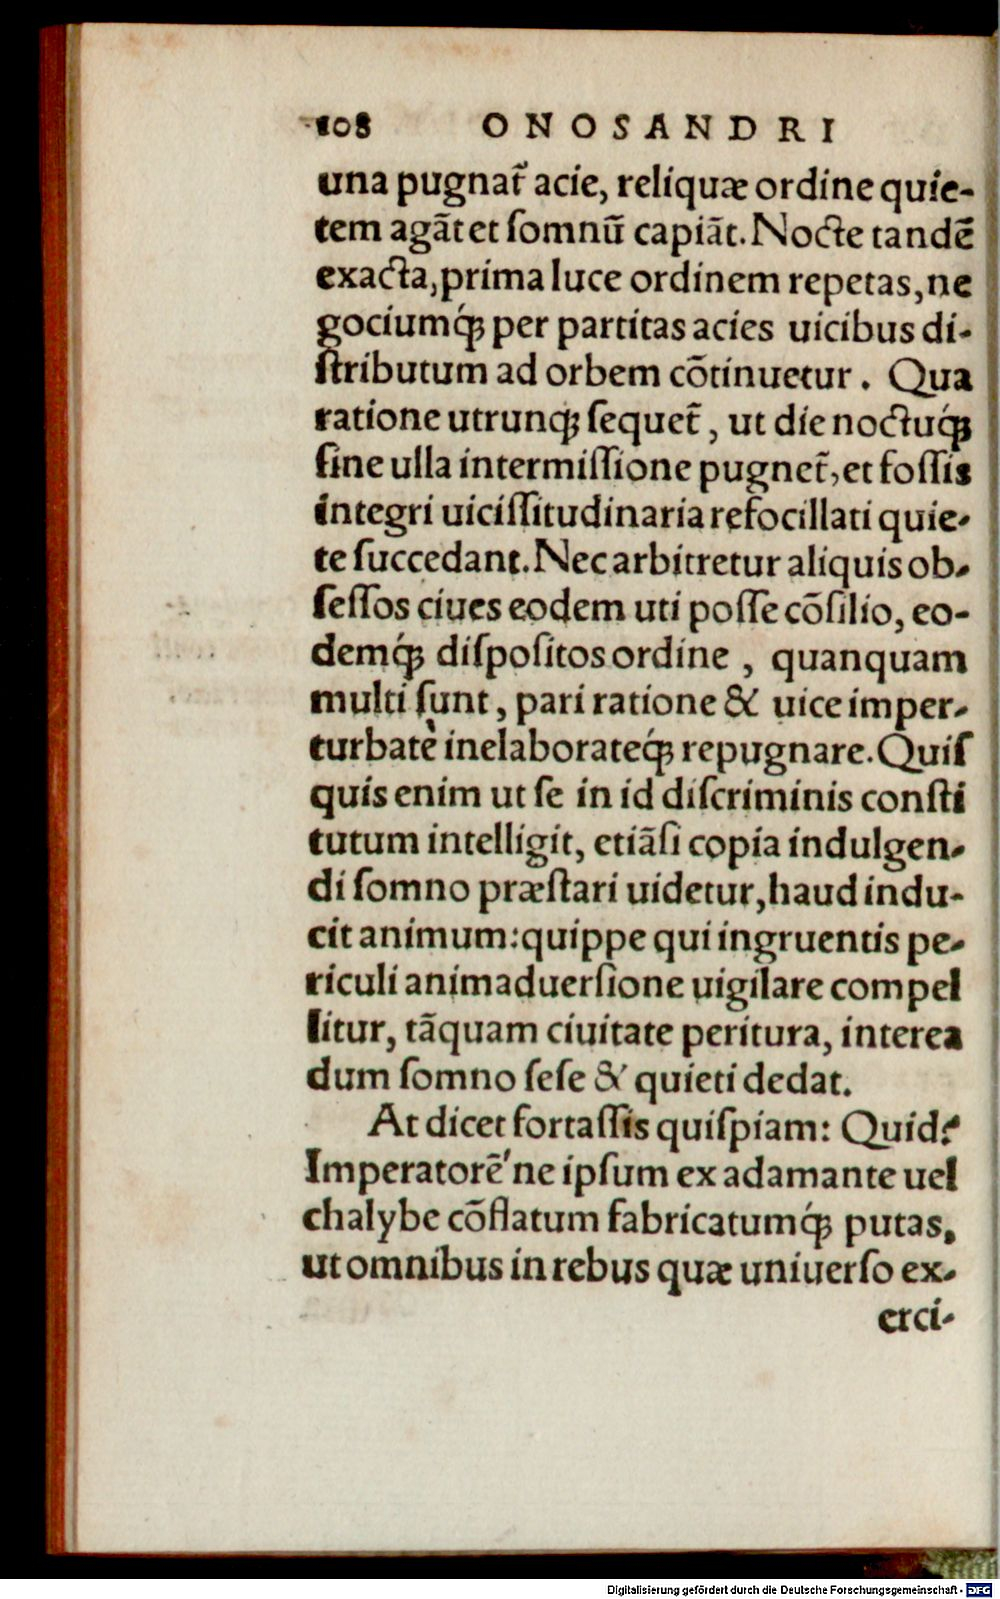 108 ONOSANDRI
una pugnat᷑ acie, reliquæ ordine quie-
tem agāt et ſomnū capiāt. Nocte tandē
exacta, prima luce ordinem repetas, ne
gociumq́ꝫ per partitas acies uicibus di-
ſtributum ad orbem cōtinuetur. Qua
ratione utrunqꝫ ſequet᷑, ut die noctuq́ꝫ
ſine ulla intermiſſione pugnet᷑, et foſſis
integri uiciſſitudinaria refocillati quie-
te ſuccedant. Nec arbitretur aliquis ob-
ſeſſos ciues eodem uti poſſe cōſilio, eo-
demq́ꝫ diſpoſitos ordine, quanquam
multi ſunt, pari ratione & uice imper-
turbatè inelaborateq́ꝫ repugnare. Quiſ
quis enim ut ſe in id diſcriminis conſti
tutum intelligit, etiāſi copia indulgen-
di ſomno præſtari uidetur, haud indu-
cit animum: quippe qui ingruentis pe-
riculi animaduerſione uigilare compel
litur, tāquam ciuitate peritura, interea
dum ſomno ſeſe & quieti dedat.
At dicet fortaſſis quiſpiam: Quid?
Imperatorē'ne ipſum ex adamante uel
chalybe cōflatum fabricatumq́ꝫ putas,
ut omnibus in rebus quæ uniuerſo ex-
erci-
Digitalisierung gefördert durch die Deutsche Forschungsgemeinschaft - DFG